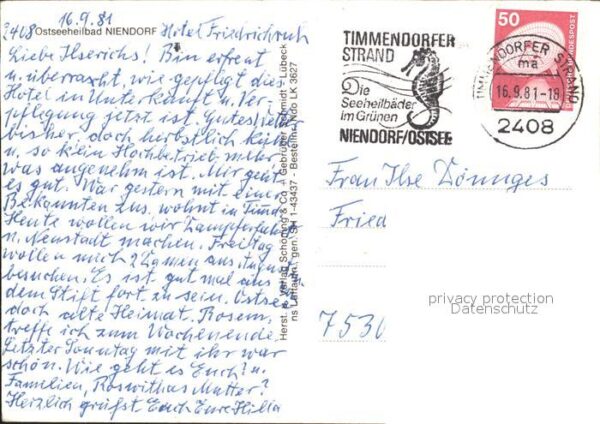 16.9.81
2408 Ostseeheilbad NIENDORF Hotel Friedrichsruh
Liebe Ilserichs! Bin erfreut
u. überrascht, wie gepflegt dies
Hotel in Unterkunft u. Ver-
pflegung jetzt ist. Gutes
bisher, doch herbstlich kühl
u. so kein Hochbetrieb mehr,
was angenehm ist. Mir geht
es gut. War gestern mit einer
Bekannten zus. wohnt in
Heute wollen wir Dampferfahrt
n. Neustadt machen. Freitag
wollen mich 2 Damen aus
besuchen. Es ist gut mal aus
dem Stift fort zu sein. Ostsee
doch alte Heimat. Rosem.
treffe ich zum Wochenende.
Letzter Sonntag mit ihr war
schön. Wie geht es Euch? u.
Familien, Roswithas Mutter?
Herzlich grüßt Euch Eure Hilla
Herst. u. Verlag Schöning & Co + Gebrüder Schmidt · Lübeck
ns Luftaufn. gen. SH 1-43437 - Bestell-Nr. Ndo LK 3627
TIMMENDORFER
STRAND
Die
Seeheilbäder
im Grünen
NIENDORF/OSTSEE
50
DEUTSCHE BUNDESPOST
TIMMENDORFER STRAND
ma
16.9.81-18
2408
Frau Ilse Dönges
Fried
privacy protection
Datenschutz
7530